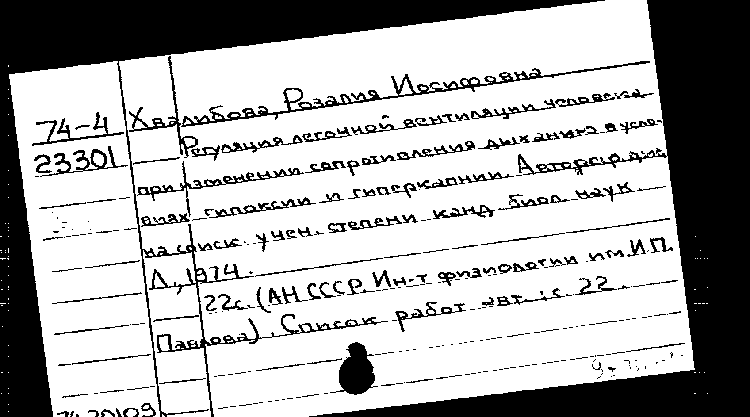 Хвалибова, Розалия Иосифовна
74-4
23301
Регуляция легочной вентиляции человека
при изменении сопротивления дыханию в усло-
виях гипоксии и гиперкапнии. Автореф. дис.
на соиск. учен. степени канд. биол. наук.
Л., 1974.
22с. (АН СССР. Ин-т физиологии им. И.П.
Павлова). Список работ авт.: с. 22.
74-20109